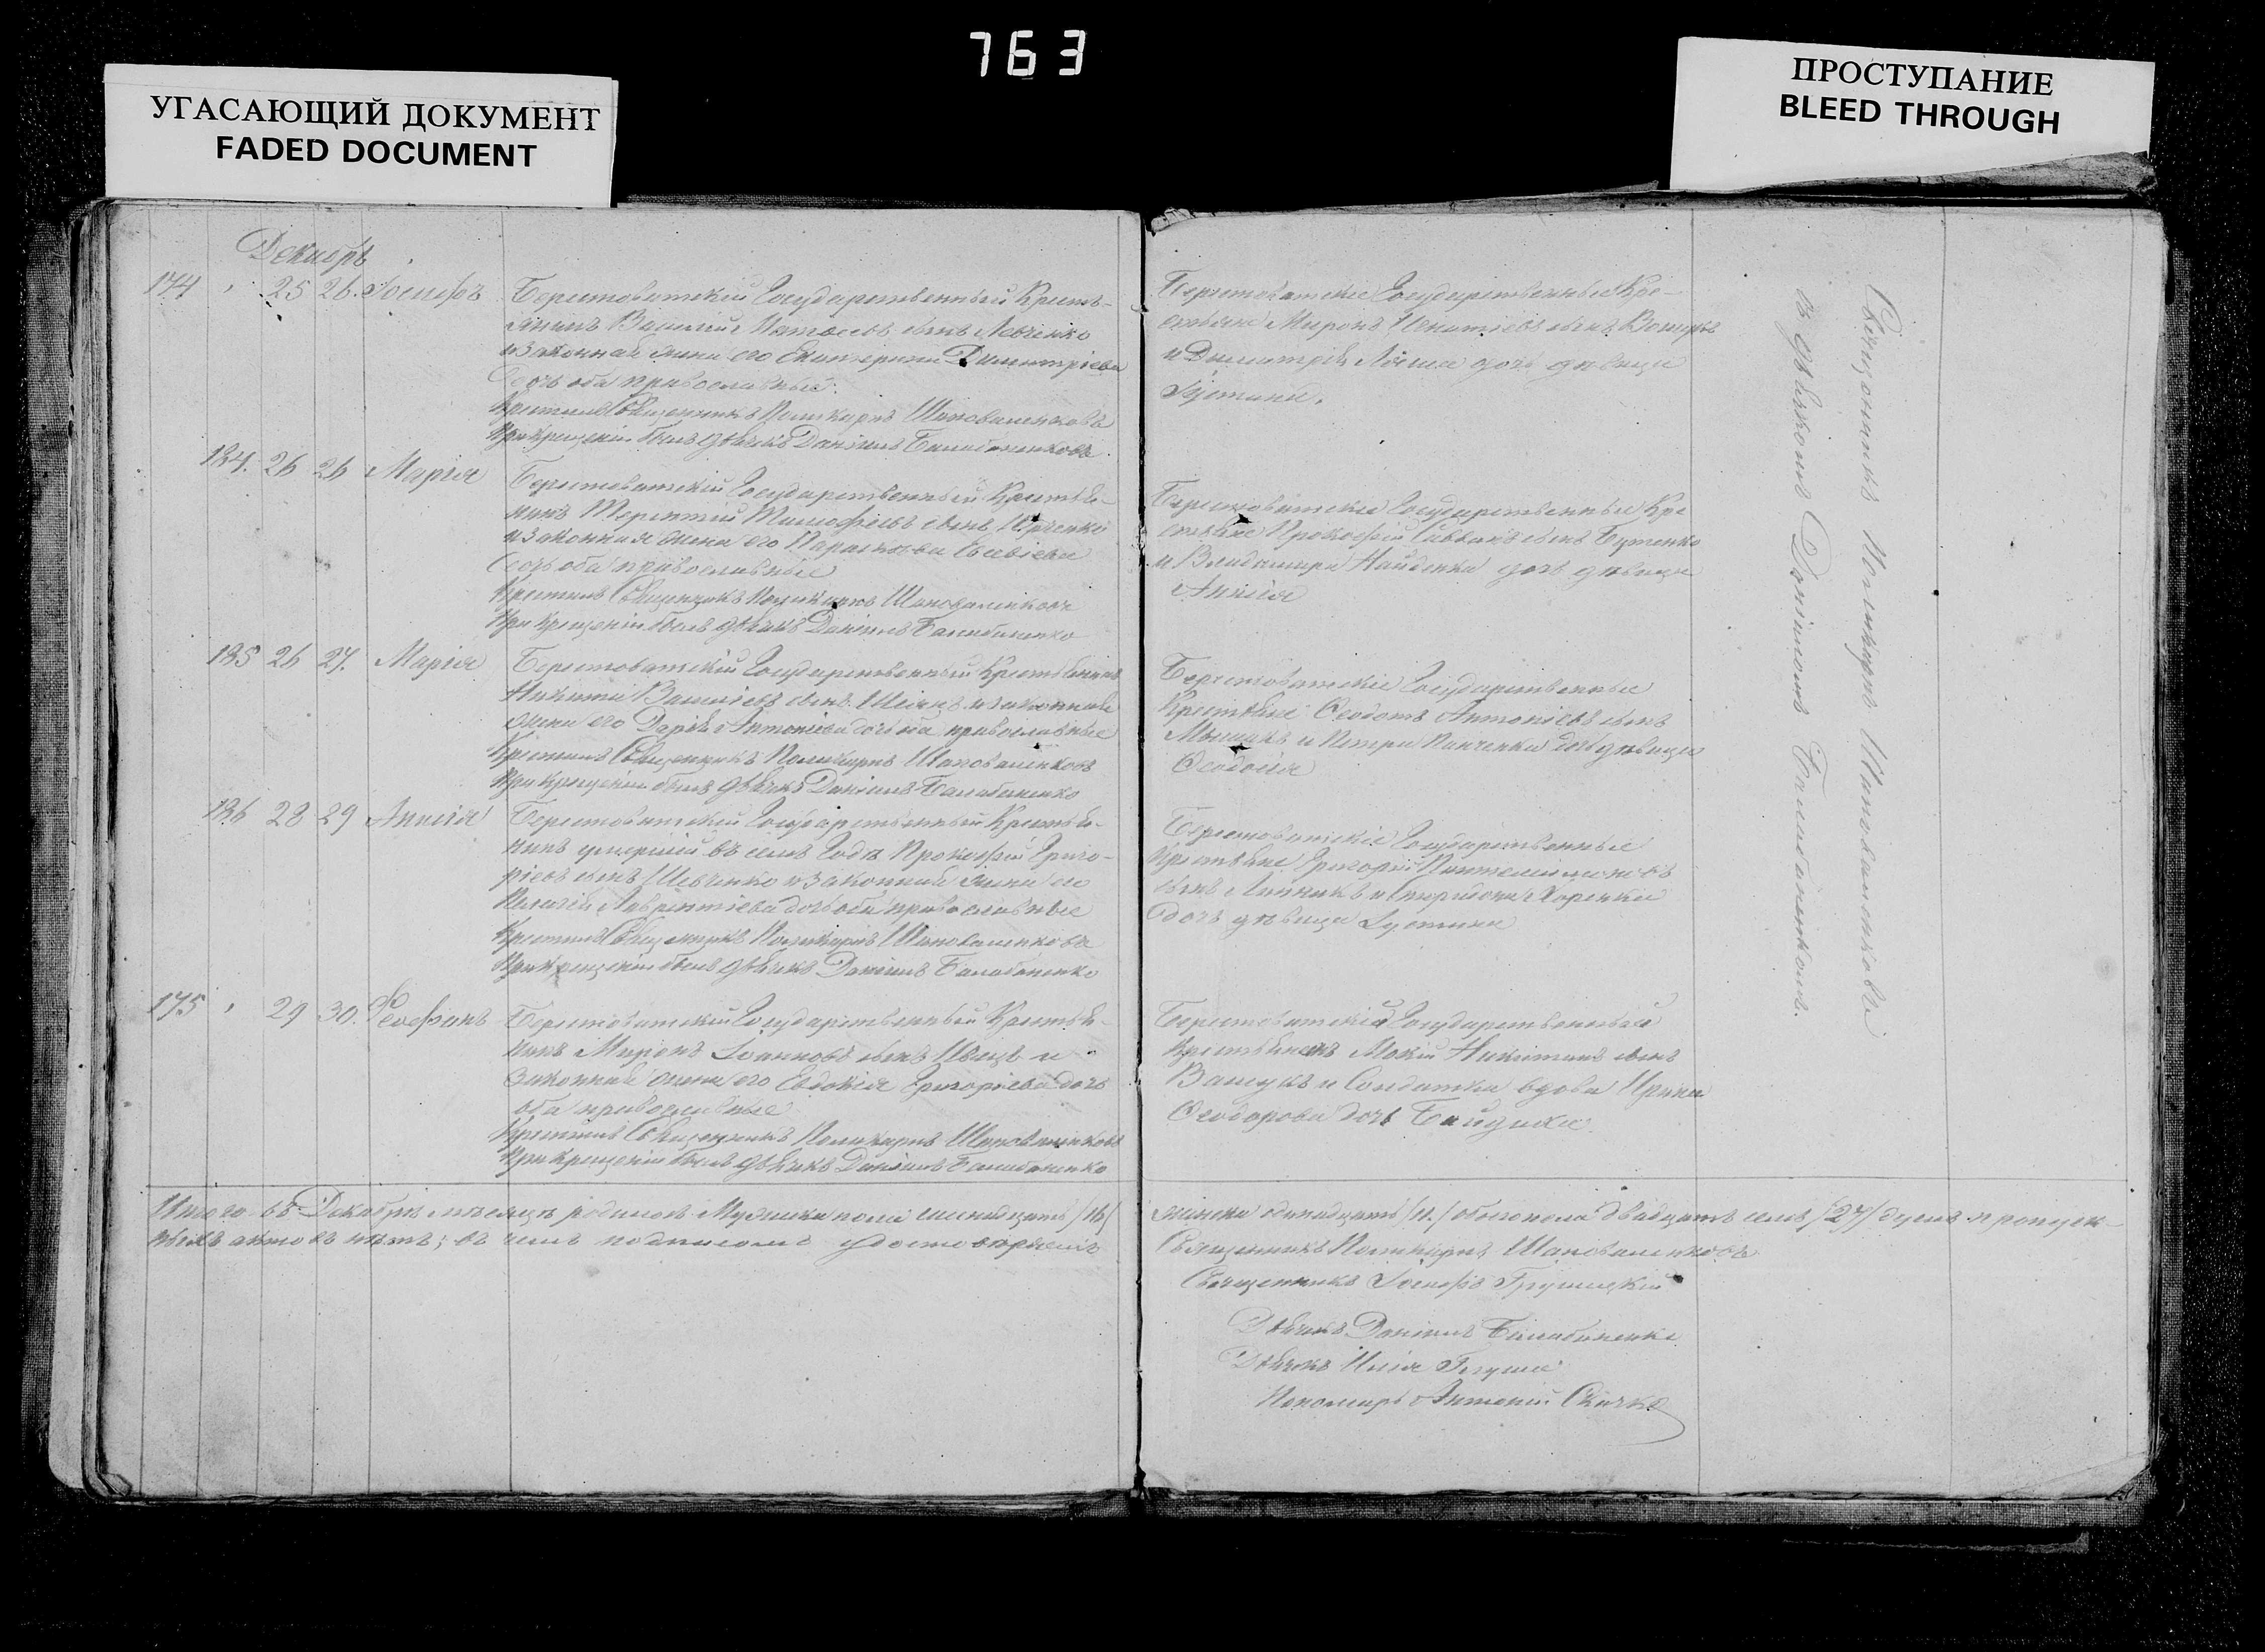 763
УГАСАЮЩИЙ ДОКУМЕНТ
FADED DOCUMENT
ПРОСТУПАНИЕ
BLEED THROUGH
Декабрь
174 25 26 Іосифъ Берестоватскій Государственный Кресть-
янинъ Василій сынъ Левченко
и законная жена его Екатерина Димитріева
дочь оба православные.
Крестилъ Священникъ Поликарпъ Шаповаленковъ
При крещеніи былъ дьячкъ Даніилъ Балабаненковъ.
Берестоватскіе Государственные Кре-
стьяне Миронъ сынъ
и Димитрія дочь дѣвица
Іустина.
184. 26 26 Марія Берестоватскій Государственный Крестья-
нинъ Терентій Тимофѣевъ сынъ Юрченко
и законная жена его Параскева
дочь оба православные
Крестилъ Священникъ Поликарпъ Шаповаленковъ
При крещеніи былъ дьячкъ Даніилъ Балабаненко
Берестоватскіе Государственные Кре
стьяне Прокофій Саввинъ сынъ Бутенко
и Владимира Найденка дочь дѣвица
Анна
185 26 27. Марія Берестоватскій Государственный Крестьянинъ
Никита Васильевъ сынъ и законная
жена его Дарья Антоніева дочь оба православные
Крестилъ Священникъ Поликарпъ Шаповаленковъ
При крещеніи былъ дьячкъ Даніилъ Балабаненко
Берестоватскіе Государственные
Крестьяне Ѳеодотъ Антоніевъ сынъ
и Петра Панченка дочь дѣвица
Ѳеодосія
186 28 29 Анисія Берестоватскій Государственный Крестья-
нинъ умершій въ семъ годѣ Прокофій Григо-
ріевъ сынъ Шевченко и законная жена его
Пелагія Лаврентіева дочь оба православные
Крестилъ Священникъ Поликарпъ Шаповаленковъ
При крещеніи былъ дьячкъ Даніилъ Балабаненко
Берестоватскіе Государственные
Крестьяне Григорій Пантелеимоновъ
сынъ Линникъ и Спиридона Харенка
дочь дѣвица Іустина
175 29 30. Ѳеофанъ Берестоватскій Государственный Крестья-
нинъ Миронъ Іоанновъ сынъ Швецъ и
законная жена его Евдокія Григоріева дочь
оба православные
Крестилъ Священникъ Поликарпъ Шаповаленковъ
При крещеніи былъ дьячкъ Даніилъ Балабаненко
Берестоватскій Государственный
Крестьянинъ Мокій Никитинъ сынъ
и Солдатка вдова Ирина
Ѳеодорова дочь
Священникъ Поликарпъ Шаповаленковъ
съ дьячкомъ Даніиломъ Балабаненкомъ.
Итого въ Декабрѣ мѣсяцѣ родилось Мужеска пола шестнадцать /16/ женска одинадцать /11/ обоего пола двадцать семь /27/ душъ пропущен-
ныхъ актовъ нѣтъ; въ чемъ подписомъ удостовѣряемъ
Священникъ Поликарпъ Шаповаленковъ
Священникъ Іосифъ Грушецкій
Дьячкъ Даніилъ Балабаненко
Дьячекъ Илія Глуша
Пономарь Антоній Скачко